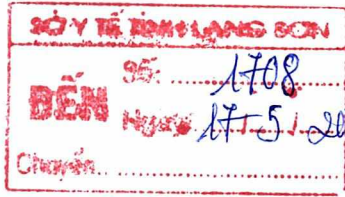 SỞ Y TẾ TỈNH LẠNG SƠN
ĐẾN
Số: 1708
Ngày 17/5/20
Chuyển